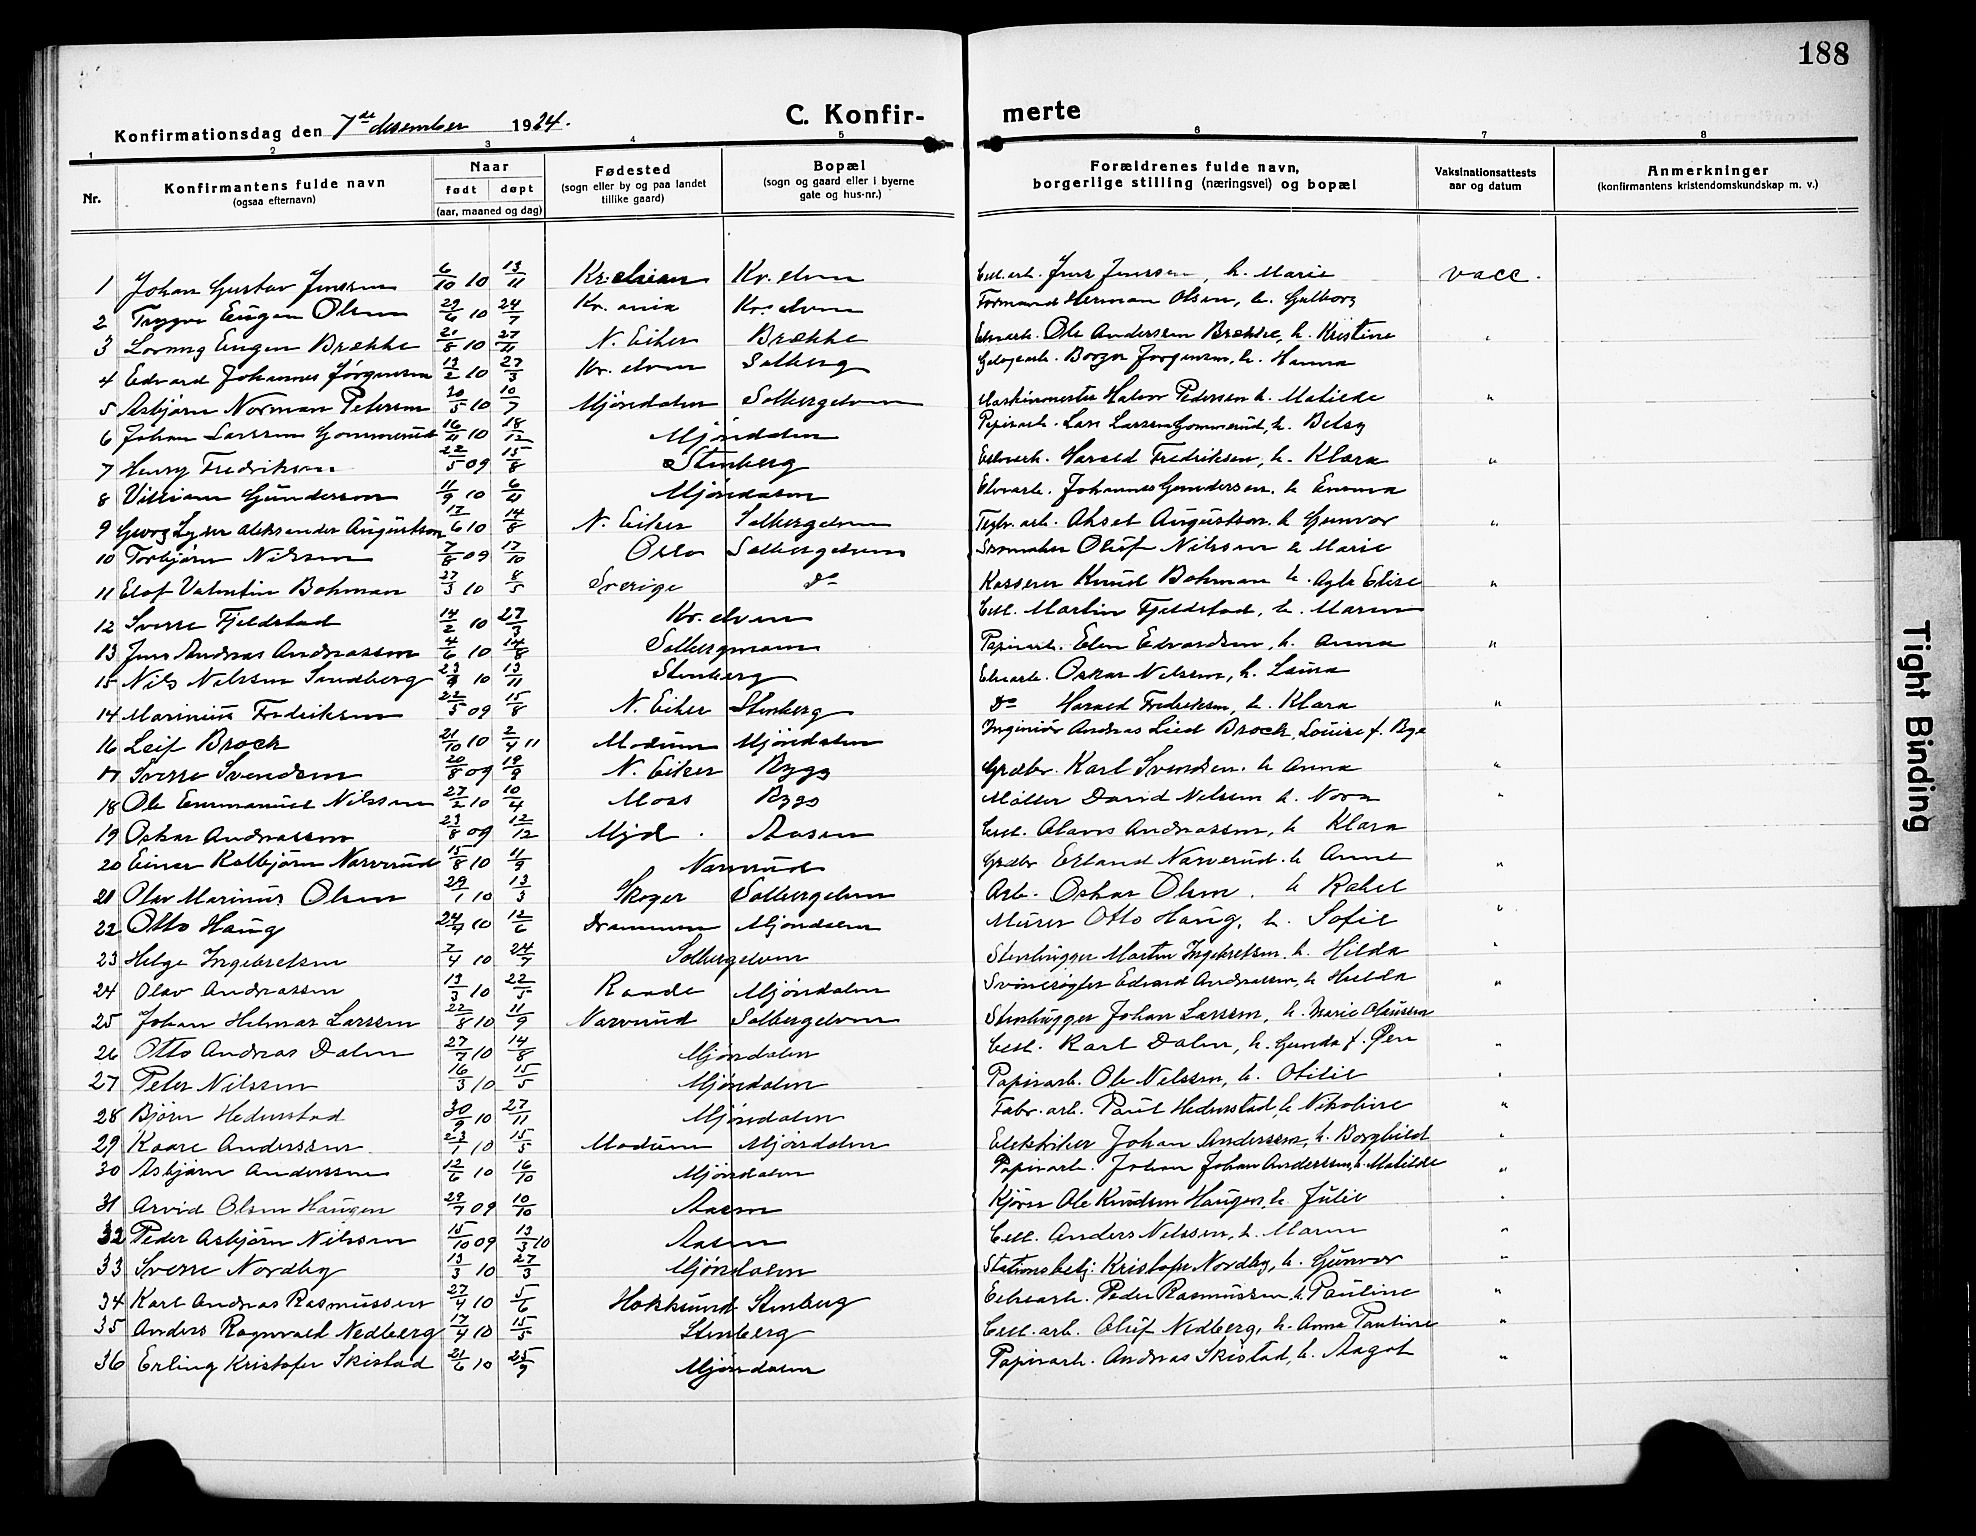 188
Konfirmationsdag den 7de desember 1924.
C. Konfir-
merte
1 2 3 4 5 6 7 8
Nr.
Konfirmantens fulde navn
(ogsaa efternavn)
Naar
født døpt
(aar, maaned og dag)
Fødested
(sogn eller by og paa landet
tillike gaard)
Bopæl
(sogn og gaard eller i byerne
gate og hus-nr.)
Forældrenes fulde navn,
borgerlige stilling (næringsvei) og bopæl
Vaksinationsattests
aar og datum
Anmerkninger
(konfirmantens kristendomskundskap m. v.)
1 Johan Gustav Jenssen 6/10 10 13/11 Kr. elven Cell. arb. Jens Jenssen, h. Marie vacc.
2 Trygve Eugen Olsen 29/6 10 24/7 Kr. ania Kr. elven Formand Herman Olsen, h. Gulborg
3 Eugen Brække 21/8 10 27/11 N. Eiker Brække Elvearb. Ole Anderssen Brække, h. Kristine "
4 Edvard Johannes Jørgensen 13/2 10 27/3 Kr. elven Solberg Borger Jørgensen, h. Hanna
5 Asbjørn Norman Petersen 20/5 10 10/7 Mjøndalen Solbergelven Maskinmester Halvor Pedersen h. Matilde "
6 Johan Larssen Gommerud 16/11 10 18/12 Mjøndalen Papirarb. Lars Larssen Gommerud, h. Betsy
7 Henry Fredriksen 22/5 09 15/8 Stenberg Elvearb. Harald Fredriksen, h. Klara "
8 Villiam Gundersen 11/9 10 6/11 Mjøndalen Elvearb. Johannes Gundersen. h Emma
9 Georg Lyder Aleksander Augustson 17/6 10 14/8 N. Eiker Solbergelven Teglv. arb. Aksel Augustson. h Gunvor "
10 Torbjørn Nilssen 7/8 09 17/10 Oslo Solbergelven Skomaker Oluf Nilssen h Marie
11 Elof Valentin Bohman 27/3 10 8/5 Sverige do Kasserer Knud Bohman h. Elise "
12 Sverre Fjeldstad 14/2 10 27/3 Kr. elven Cell. Martin Fjeldstad, h. Maren
13 Jens Andreas Andreassen 4/6 10 14/8 Papirarb. Edvardsen, h. Anna "
15 Nils Nilssen Sandberg 23/9 10 13/11 Stenberg Elvearb. Oskar Nilssen, h. Laura
14 Marinius Fredriksen 22/5 09 15/8 N. Eiker Stenberg Do Harald Fredriksen, h. Klara "
16 Leif Brock 21/10 10 2/4 11 Modum Mjøndalen Ingeniør Andreas Lied Brock, Louise f. Bye
17 Sverre Svendsen 20/8 09 19/9 N. Eiker Bygg Grdbr. Karl Svendsen. h Anna "
18 Ole Emmanuel Nilssen 27/2 10 10/4 Moss Bygg Møller David Nilssen h. Nora "
19 Oskar Andreassen 23/8 09 12/12 Mjd. Aasen Cell. Olaves Andreassen, h Klara
20 Einar Kolbjørn Narverud 15/8 10 11/9 Narverud Grdbr Erland Narverud. h Anne "
21 Olav Marinus Olsen 29/1 10 13/3 Skoger Solbergelven Arb. Oskar Olsen. h Rakel
22 Otto Haug 24/4 10 12/6 Drammen Mjøndalen Murer Otto Haug, h. Sofie "
23 Helge Ingebretsen 7/4 10 24/7 Solbergelven Stenhugger Martin Ingebretsen. h. Hilda "
24 Olav Andreassen 13/3 10 22/5 Raade Mjøndalen Svinerøgter Edvard Andreassen, h Hulda "
25 Johan Helmar Larssen 22/8 10 11/9 Narverud Solbergelven Stenhugger Johan Larssen, h. Marie Olaussen
26 Otto Andreas Dalen 27/7 10 14/8 Mjøndalen Cell. Karl Dalen, h. Gunda f. Øen "
27 Peter Nilssen 16/3 10 15/5 Mjøndalen Papirarb. Ole Nilssen, h. Otilie "
28 Bjørn Hedenstad 30/9 10 27/11 Mjøndalen Fabr. arb. Paul Hedenstad, h Nikoline "
29 Kaare Anderssen 23/1 10 15/5 Modum Mjøndalen Elektriker Johan Anderssen, h. Borghild "
30 Asbjørn Anderssen 12/6 10 16/10 Mjøndalen Papirarb. Johan Johan Anderssen, h. Matilde "
31 Arvid Olsen Haugen 29/7 09 10/10 Aasen Kjører Ole Knudsen Haugen, h. Julie "
32 Peder Asbjørn Nilssen 15/10 09 13/3 10 Aasen Cell. Anders Nilssen, h. Maren "
33 Sverre Nordby 13/3 10 27/3 Mjøndalen Stationsbetj. Kristofer Nordby, h. Gunvor "
34 Karl Andreas Rasmussen 27/4 10 5/6 Hokksund Stenberg Elvearb. Peder Rasmussen, h. Pauline "
35 Anders Ragnvald Nedberg 17/4 10 15/5 Stenberg Cell. arb. Oluf Nedberg, h. Anna Pauline "
36 Erling Kristofer Skistad 21/6 10 25/9 Mjøndalen Papirarb. Andreas Skistad, h. Aagot "
Tight Binding